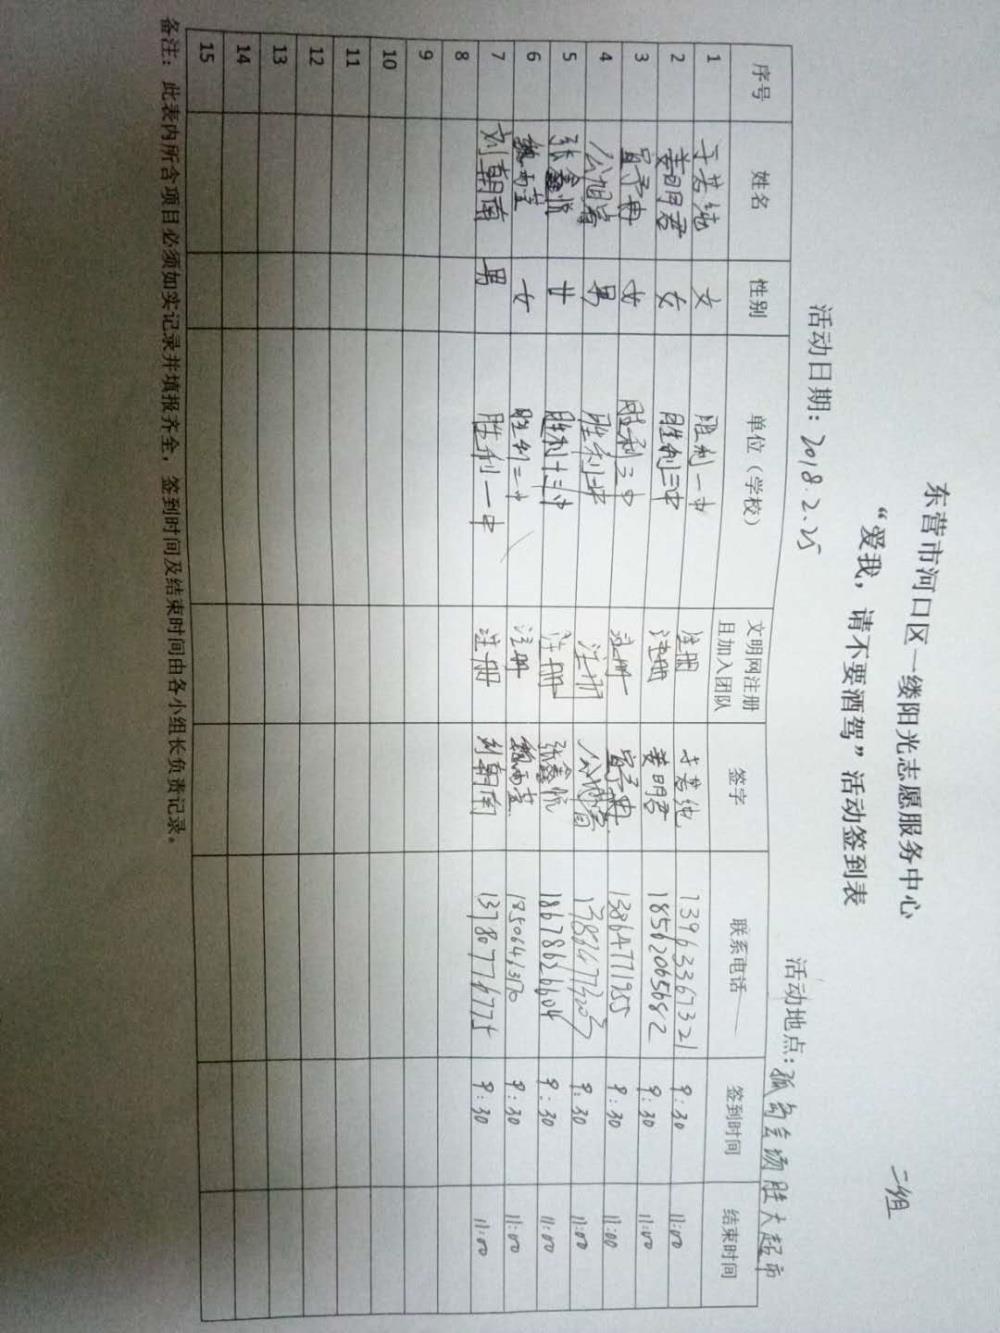 东营市河口区一缕阳光志愿服务中心
“爱我，请不要酒驾”活动签到表
二组
活动日期：2018.2.25 活动地点：孤岛会场胜大超市
序号 姓名 性别 单位（学校） 文明网注册且加入团队 签字 联系电话 签到时间 结束时间
1 于若纯 女 胜利一中 注册 于若纯 13963367321 9:30 11:00
2 姜明君 女 胜利三中 注册 姜明君 18562065682 9:30 11:00
3 女 胜利三中 注册 13864771955 9:30 11:00
4 男 胜利 注册 9:30 11:00
5 张鑫悦 女 胜利十三中 注册 张鑫悦 18678626604 9:30 11:00
6 魏雨萱 女 胜利二中 注册 魏雨萱 9:30 11:00
7 刘朝南 男 胜利一中 注册 刘朝南 13780774775 9:30 11:00
8
9
10
11
12
13
14
15
备注：此表内所含项目必须如实记录并填报齐全，签到时间及结束时间由各小组长负责记录。